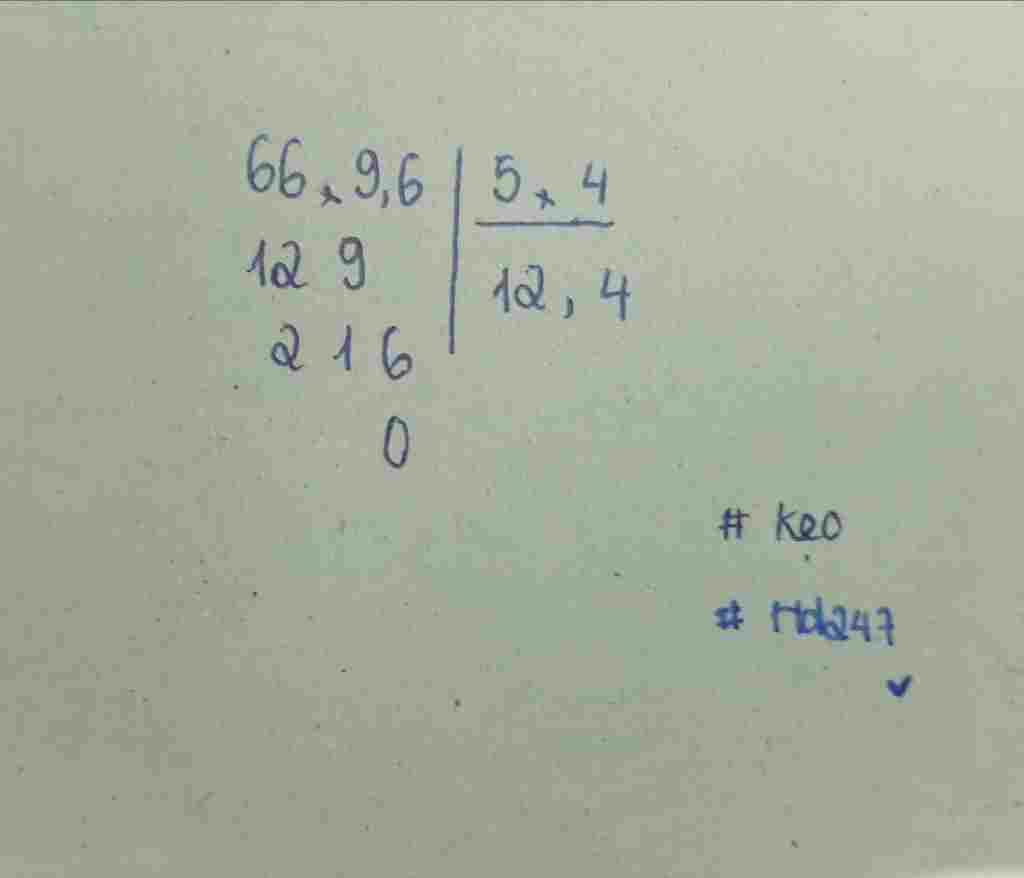 66,9,6 | 5,4
12 9 | 12,4
2 1 6
0
# Kẹo
# Hdb247